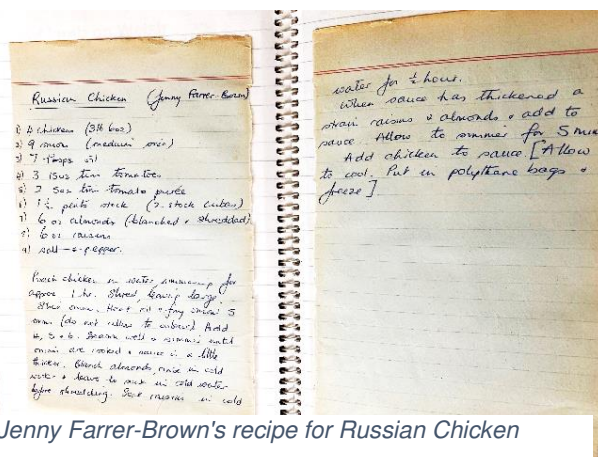 Russian Chicken (Jenny Farrer-Brown)
1) 4 chickens (3lb 6oz)
2) 9 onions (medium ones)
3) 7 tbsps oil
4) 3 15oz tins tomatoes
5) 3 5oz tins tomato purée
6) 1½ pints stock (2 stock cubes)
7) 6 oz almonds (blanched + shredded)
8) 6 oz raisins
9) salt + pepper.
Poach chicken in water, simmering for
approx 1 hr. Shred, leaving large.
Slice onions. Heat oil + fry onions 5
mins (do not allow to colour) Add
4, 5 + 6. Season well + simmer until
onions are cooked + sauce is a little
thicker. Blanch almonds, rinse in cold
water + leave to soak in cold water
before shredding. Soak raisins in cold
water for ½ hour.
When sauce has thickened a
strain raisins + almonds + add to
sauce. Allow to simmer for 5 mins
Add chicken to sauce. [Allow
to cool. Put in polythene bags +
freeze]
Jenny Farrer-Brown's recipe for Russian Chicken